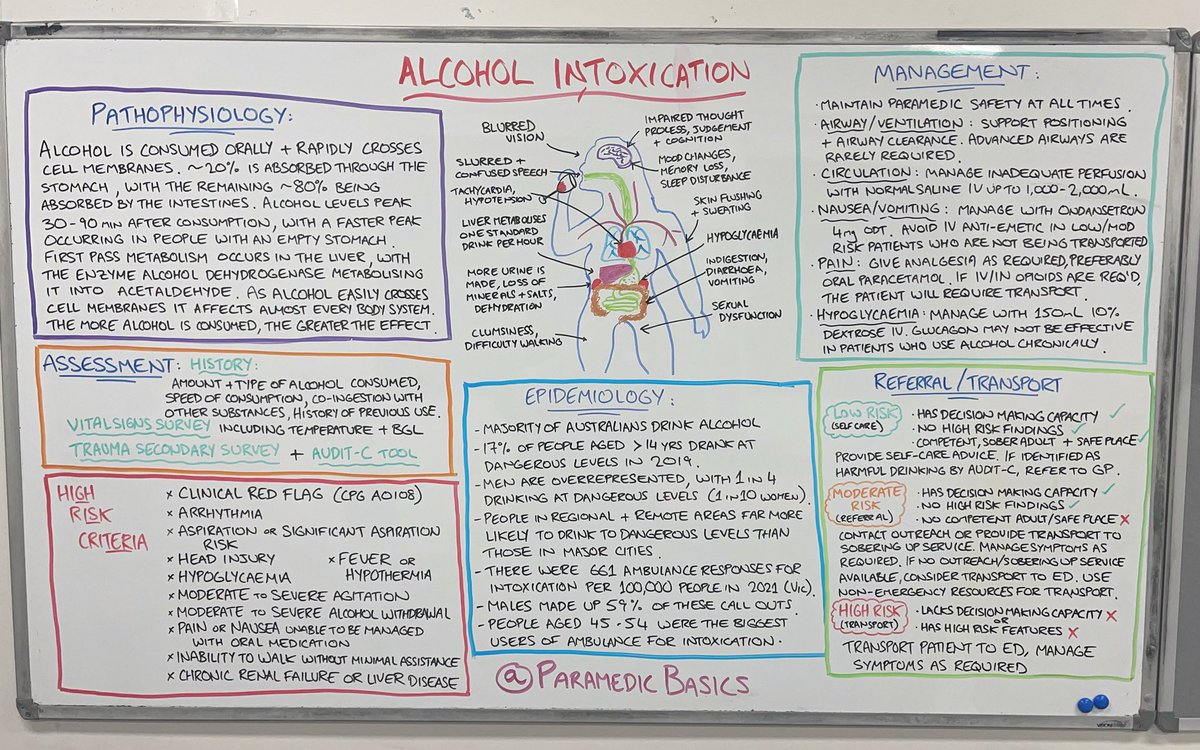 ALCOHOL INTOXICATION
PATHOPHYSIOLOGY:
ALCOHOL IS CONSUMED ORALLY + RAPIDLY CROSSES
CELL MEMBRANES. ~20% IS ABSORBED THROUGH THE
STOMACH, WITH THE REMAINING ~80% BEING
ABSORBED BY THE INTESTINES. ALCOHOL LEVELS PEAK
30-90 MIN AFTER CONSUMPTION, WITH A FASTER PEAK
OCCURRING IN PEOPLE WITH AN EMPTY STOMACH.
FIRST PASS METABOLISM OCCURS IN THE LIVER, WITH
THE ENZYME ALCOHOL DEHYDROGENASE METABOLISING
IT INTO ACETALDEHYDE. AS ALCOHOL EASILY CROSSES
CELL MEMBRANES IT AFFECTS ALMOST EVERY BODY SYSTEM.
THE MORE ALCOHOL IS CONSUMED, THE GREATER THE EFFECT.
ASSESSMENT: HISTORY:
AMOUNT + TYPE OF ALCOHOL CONSUMED,
SPEED OF CONSUMPTION, CO-INGESTION WITH
OTHER SUBSTANCES, HISTORY OF PREVIOUS USE.
VITAL SIGNS SURVEY INCLUDING TEMPERATURE + BGL
TRAUMA SECONDARY SURVEY + AUDIT-C TOOL
HIGH
RISK
CRITERIA
× CLINICAL RED FLAG (CPG A0108)
× ARRHYTHMIA
× ASPIRATION OR SIGNIFICANT ASPIRATION
RISK
× HEAD INJURY × FEVER OR
× HYPOGLYCAEMIA HYPOTHERMIA
× MODERATE TO SEVERE AGITATION
× MODERATE TO SEVERE ALCOHOL WITHDRAWAL
× PAIN OR NAUSEA UNABLE TO BE MANAGED
WITH ORAL MEDICATION
× INABILITY TO WALK WITHOUT MINIMAL ASSISTANCE
× CHRONIC RENAL FAILURE OR LIVER DISEASE
BLURRED
VISION
SLURRED +
CONFUSED SPEECH
TACHYCARDIA,
HYPOTENSION
LIVER METABOLISES
ONE STANDARD
DRINK PER HOUR
MORE URINE IS
MADE, LOSS OF
MINERALS + SALTS,
DEHYDRATION
CLUMSINESS,
DIFFICULTY WALKING
IMPAIRED THOUGHT
PROCESS, JUDGEMENT
+ COGNITION
MOOD CHANGES,
MEMORY LOSS,
SLEEP DISTURBANCE
SKIN FLUSHING
+ SWEATING
HYPOGLYCAEMIA
INDIGESTION,
DIARRHOEA,
VOMITING
SEXUAL
DYSFUNCTION
EPIDEMIOLOGY:
- MAJORITY OF AUSTRALIANS DRINK ALCOHOL
- 17% OF PEOPLE AGED >14 YRS DRANK AT
DANGEROUS LEVELS IN 2019.
- MEN ARE OVERREPRESENTED, WITH 1 IN 4
DRINKING AT DANGEROUS LEVELS (1 IN 10 WOMEN).
- PEOPLE IN REGIONAL + REMOTE AREAS FAR MORE
LIKELY TO DRINK TO DANGEROUS LEVELS THAN
THOSE IN MAJOR CITIES.
- THERE WERE 661 AMBULANCE RESPONSES FOR
INTOXICATION PER 100,000 PEOPLE IN 2021 (VIC).
- MALES MADE UP 59% OF THESE CALL OUTS.
- PEOPLE AGED 45-54 WERE THE BIGGEST
USERS OF AMBULANCE FOR INTOXICATION.
@PARAMEDIC BASICS
MANAGEMENT:
· MAINTAIN PARAMEDIC SAFETY AT ALL TIMES.
· AIRWAY/VENTILATION: SUPPORT POSITIONING
+ AIRWAY CLEARANCE. ADVANCED AIRWAYS ARE
RARELY REQUIRED.
· CIRCULATION: MANAGE INADEQUATE PERFUSION
WITH NORMAL SALINE IV UP TO 1,000-2,000mL.
· NAUSEA/VOMITING: MANAGE WITH ONDANSETRON
4mg ODT. AVOID IV ANTI-EMETIC IN LOW/MOD
RISK PATIENTS WHO ARE NOT BEING TRANSPORTED
· PAIN: GIVE ANALGESIA AS REQUIRED, PREFERABLY
ORAL PARACETAMOL. IF IV/IN OPIOIDS ARE REQ'D,
THE PATIENT WILL REQUIRE TRANSPORT.
· HYPOGLYCAEMIA: MANAGE WITH 150mL 10%
DEXTROSE IV. GLUCAGON MAY NOT BE EFFECTIVE
IN PATIENTS WHO USE ALCOHOL CHRONICALLY.
REFERRAL/TRANSPORT
LOW RISK
(SELF CARE)
· HAS DECISION MAKING CAPACITY ✓
· NO HIGH RISK FINDINGS ✓
· COMPETENT, SOBER ADULT + SAFE PLACE ✓
PROVIDE SELF-CARE ADVICE. IF IDENTIFIED AS
HARMFUL DRINKING BY AUDIT-C, REFER TO GP.
MODERATE
RISK
(REFERRAL)
· HAS DECISION MAKING CAPACITY ✓
· NO HIGH RISK FINDINGS ✓
· NO COMPETENT ADULT/SAFE PLACE ×
CONTACT OUTREACH OR PROVIDE TRANSPORT TO
SOBERING UP SERVICE. MANAGE SYMPTOMS AS
REQUIRED. IF NO OUTREACH/SOBERING UP SERVICE
AVAILABLE, CONSIDER TRANSPORT TO ED. USE
NON-EMERGENCY RESOURCES FOR TRANSPORT.
HIGH RISK
(TRANSPORT)
· LACKS DECISION MAKING CAPACITY ×
OR
· HAS HIGH RISK FEATURES ×
TRANSPORT PATIENT TO ED, MANAGE
SYMPTOMS AS REQUIRED